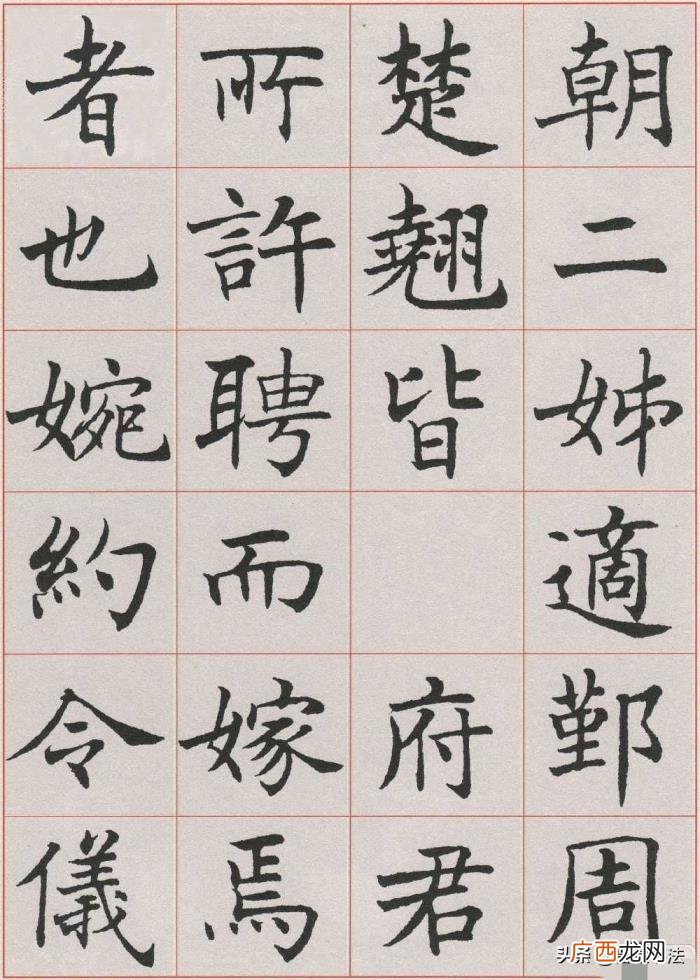 朝二姊適鄞周
楚翹皆 府君
所許聘而嫁焉
者也婉約令儀
头条
广西龙网
法